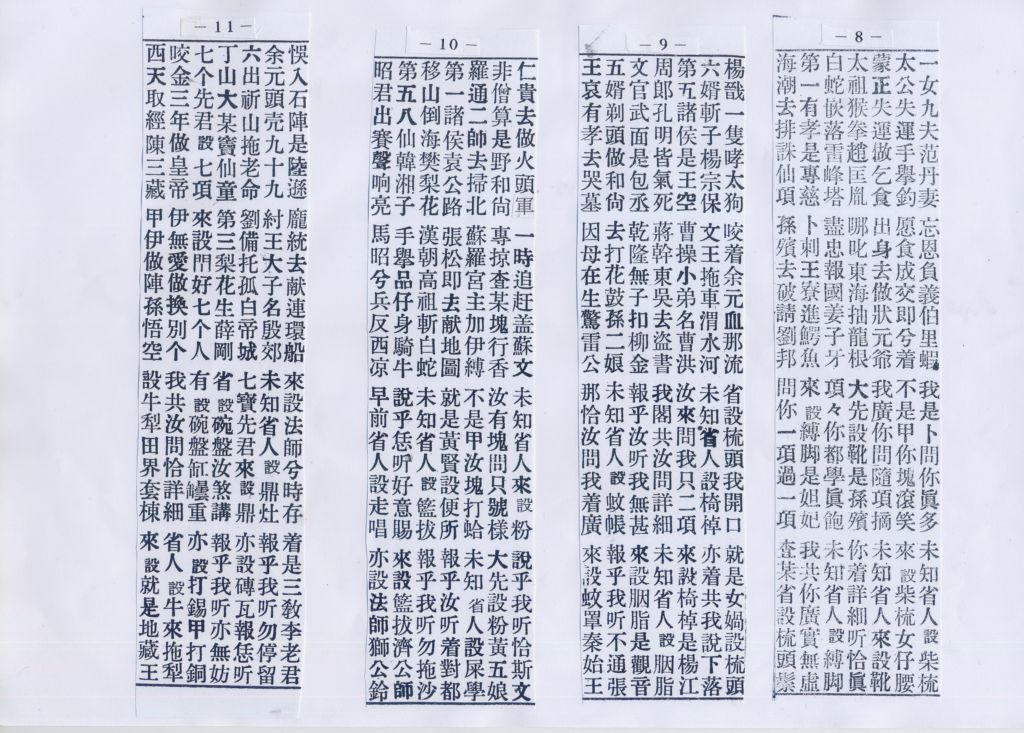 －8－
一女九夫范丹妻 忘恩負義伯里蝦 我是卜問你眞多 未知省人設柴梳
太公失運手舉鈞 愿食成交即兮着 不是甲你塊滾笑 來設柴梳女仔腰
蒙正失運做乞食 出身去做狀元爺 我廣你問隨項摘 未知省人來設靴
太祖猴拳趙匡胤 哪叱東海抽龍根 大先設靴是孫殯 你着詳細听恰眞
白蛇篏落雷峰塔 盡忠報國姜子牙 項々你都學眞飽 未知省人設縛脚
第一有孝是專慈 卜刺王寮進鰐魚 來設縛脚是妲妃 我共你廣實無虛
海潮去排誅仙項 孫殯去破請劉邦 問你一項過一項 查某省設梳頭鬃
－9－
楊戩一隻哮太狗 咬着余元血那流 省設梳頭我開口 就是女媧設梳頭
六婿斬子楊宗保 文王拖車渭水河 未知省人設椅棹 亦着共我說下落
第五諸侯是王空 曹操小弟名曹洪 汝來問我只二項 來設椅棹是楊江
周郎孔明皆氣死 蔣幹東吳去盜書 我閣共汝問詳細 未知省人設胭脂
文官武面是包丞 乾隆無子扣柳金 報乎汝听我無甚 來設胭脂是觀音
五婿剃頭做和尚 去打花鼓孫二娘 未知省人設蚊帳 報乎我听不通張
王哀有孝去哭墓 因母在生驚雷公 那恰汝問我着廣 來設蚊罩秦始王
－10－
仁貴去做火頭軍 一時追赶盖蘇文 未知省人來設粉 說乎我听恰斯文
非僧算是野和尙 專掠查某塊行香 汝有塊問只號樣 大先設粉黃五娘
羅通二師去掃北 蘇羅宮主加伊縛 不是甲汝塊打蛤 未知省人設屎學
第一諸侯袁公路 張松即去献地圖 就是黃賢設便所 報乎汝听着對都
移山倒海樊梨花 漢朝高祖斬白蛇 未知省人設籃拔 報乎我听勿拖沙
第五八仙韓湘子 手舉品仔身騎牛 說乎恁听好意賜 來設籃拔濟公師
昭君出賽聲响亮 馬昭兮兵反西凉 早前省人設走唱 亦設法師獅公鈴
－11－
悞入石陣是陸遜 龐統去献連環船 來設法師兮時存 着是三敎李老君
余元頭壳九十九 紂王大子名殷郊 未知省人設鼎灶 報乎我听勿停留
六出祈山拖老命 劉備托孤白帝城 七寶先君來設鼎 亦設磚瓦報恁听
丁山大某竇仙童 第三梨花生薛剛 省設碗盤汝煞講 報乎我听亦無妨
七个先君設七項 來設閂好七个人 有設碗盤缸罍重 亦設打錫甲打銅
咬金三年做皇帝 伊無愛做換別个 我共汝問恰詳細 省人設牛來拖犁
西天取經陳三藏 甲伊做陣孫悟空 設牛犁田界套棟 來設就是地藏王